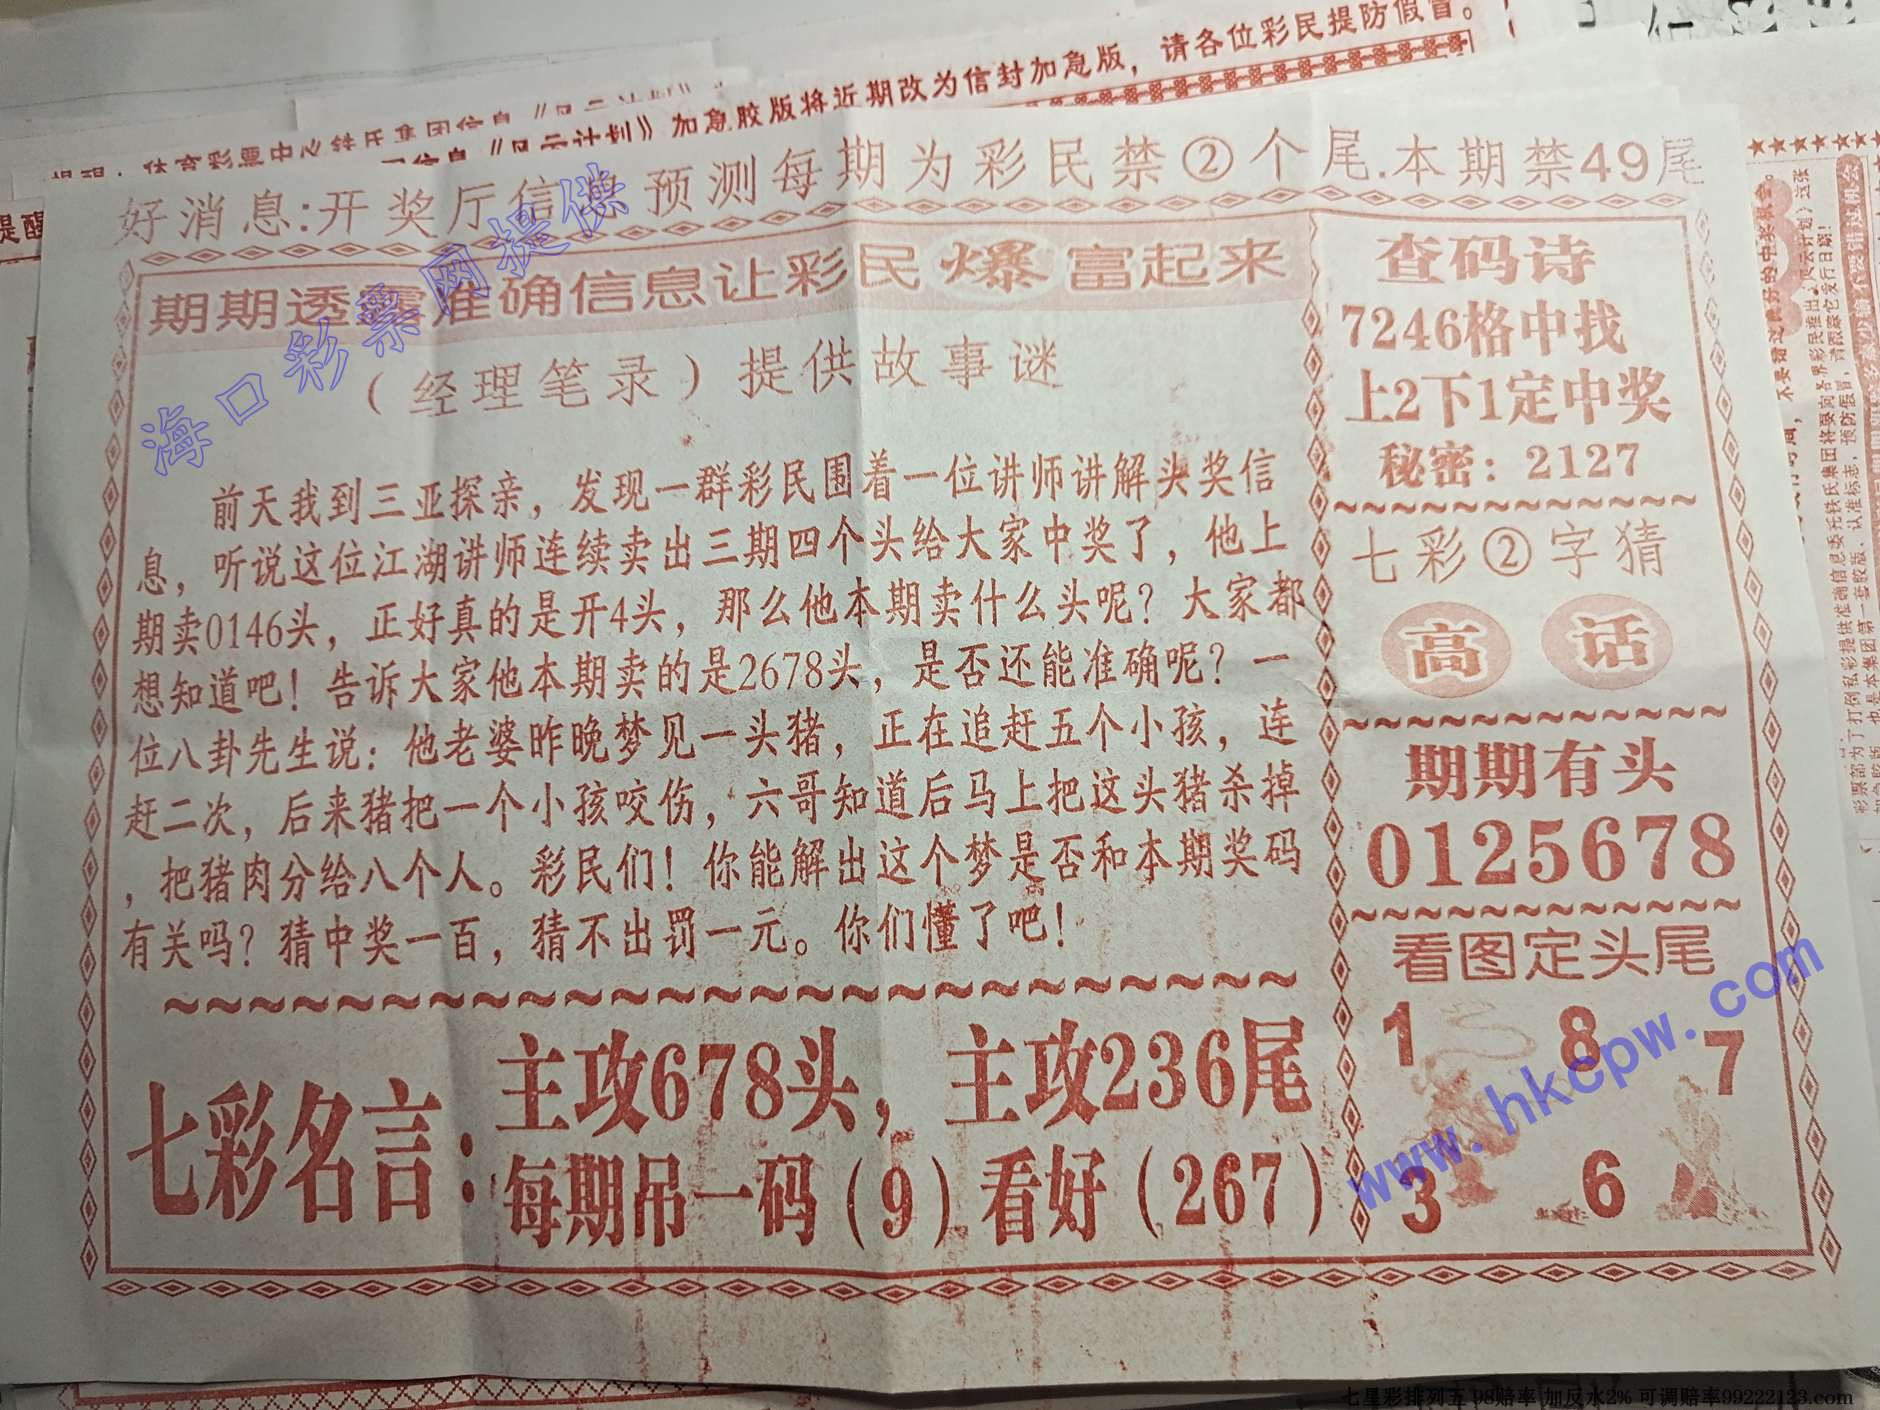 加急胶版将近期改为信封加急版，请各位彩民提防假冒。
好消息:开奖厅信息预测每期为彩民禁②个尾.本期禁49尾
期期透露准确信息让彩民爆富起来
（经理笔录）提供故事谜
前天我到三亚探亲，发现一群彩民围着一位讲师讲解头奖信
息，听说这位江湖讲师连续卖出三期四个头给大家中奖了，他上
期卖0146头，正好真的是开4头，那么他本期卖什么头呢？大家都
想知道吧！告诉大家他本期卖的是2678头，是否还能准确呢？一
位八卦先生说：他老婆昨晚梦见一头猪，正在追赶五个小孩，连
赶二次，后来猪把一个小孩咬伤，六哥知道后马上把这头猪杀掉
，把猪肉分给八个人。彩民们！你能解出这个梦是否和本期奖码
有关吗？猜中奖一百，猜不出罚一元。你们懂了吧！
七彩名言：
主攻678头，主攻236尾
每期吊一码（9）看好（267）
查码诗
7246格中找
上2下1定中奖
秘密：2127
七彩②字猜
高 话
期期有头
0125678
看图定头尾
1 8 7
3 6
海口彩票网提供
www.hkcpw.com
七星彩排列五 98赔率 加反水2% 可调赔率99222123.com